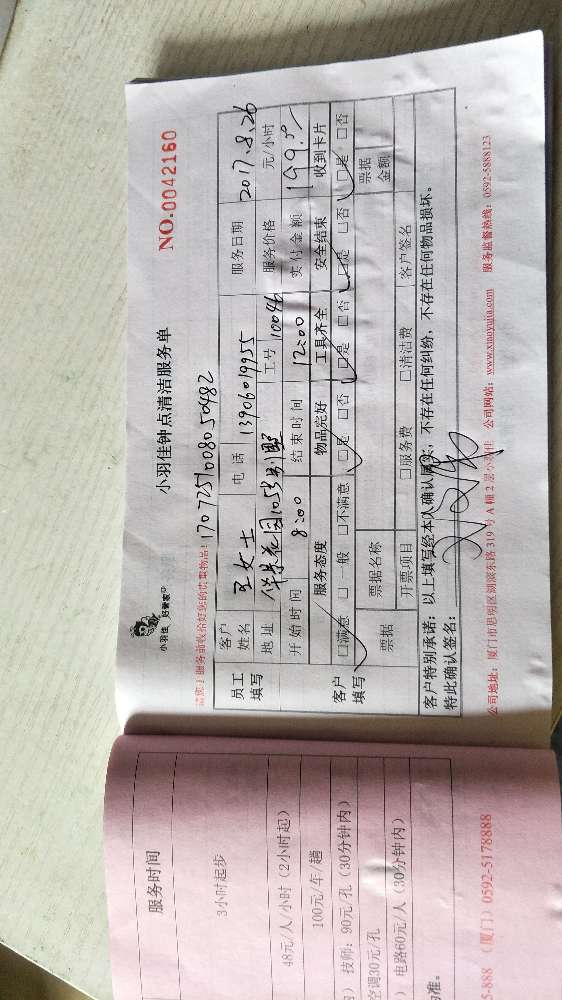 小羽佳 好管家
小羽佳钟点清洁服务单
NO.0042160
请您于服务前收拾好您的贵重物品!
170725100805 0482
员工填写
客户姓名 王女士 电话 13906019955 服务日期 2017.8.26
地址 105号别墅 工号 10046 服务价格 元/小时
开始时间 8:00 结束时间 12:00 实付金额 199.00
客户填写
服务态度 物品完好 工具齐全 安全结束 收到卡片
□满意 □一般 □不满意 □是 □否 □是 □否 □是 □否 □是 □否
票据 票据名称 票据金额
开票项目 □服务费 □清洁费 客户签名
客户特别承诺:以上填写经本人确认属实,不存在任何纠纷,不存在任何物品损坏。
特此确认签名:
公司地址:厦门市思明区湖滨东路 319 号 A 幢 2 层小羽佳 公司网站:www.xmoyujia.com 服务监督热线:0592-5888123
服务时间
3小时起步
48元/人/小时(2小时起)
100元/车/趟
) 技师:90元/孔(30分钟内)
空调30元/孔
) 电路60元/人(30分钟内)
准。
-888 (厦门)0592-5178888